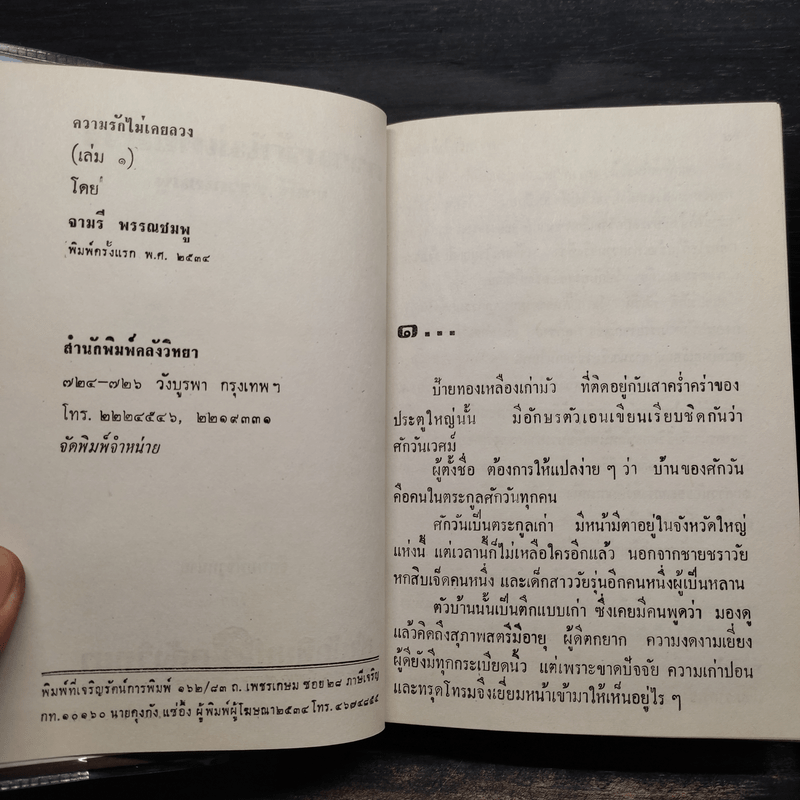 ความรักไม่เคยลวง
(เล่ม ๑)
โดย
จามรี พรรณชมพู
พิมพ์ครั้งแรก พ.ศ. ๒๕๓๔
สำนักพิมพ์คลังวิทยา
๗๒๔–๗๒๖ วังบูรพา กรุงเทพฯ
โทร. ๒๒๒๔๕๔๖, ๒๒๑๙๓๓๑
จัดพิมพ์จำหน่าย
พิมพ์ที่เจริญรัตน์การพิมพ์ ๑๖๒/๘๓ ถ. เพชรเกษม ซอย ๒๘ ภาษีเจริญ
กท. ๑๐๑๖๐ นายคุงกัง แซ่อึ้ง ผู้พิมพ์ผู้โฆษณา ๒๕๓๔ โทร. ๔๖๗๔๘๕๔
๑...
ป้ายทองเหลืองเก่ามัว ที่ติดอยู่กับเสาคร่ำคร่าของ
ประตูใหญ่นั้น มีอักษรตัวเอนเขียนเรียบชิดกันว่า
ศักวันเวศม์
ผู้ตั้งชื่อ ต้องการให้แปลง่าย ๆ ว่า บ้านของศักวัน
คือคนในตระกูลศักวันทุกคน
ศักวันเป็นตระกูลเก่า มีหน้ามีตาอยู่ในจังหวัดใหญ่
แห่งนี้ แต่เวลานี้ก็ไม่เหลือใครอีกแล้ว นอกจากชายชราวัย
หกสิบเจ็ดคนหนึ่ง และเด็กสาววัยรุ่นอีกคนหนึ่งผู้เป็นหลาน
ตัวบ้านนั้นเป็นตึกแบบเก่า ซึ่งเคยมีคนพูดว่า มองดู
แล้วคิดถึงสุภาพสตรีมีอายุ ผู้ดีตกยาก ความงดงามเยี่ยง
ผู้ดียังมีทุกกระเบียดนิ้ว แต่เพราะขาดปัจจัย ความเก่าปอน
และทรุดโทรมจึงเยี่ยมหน้าเข้ามาให้เห็นอยู่ไร ๆ